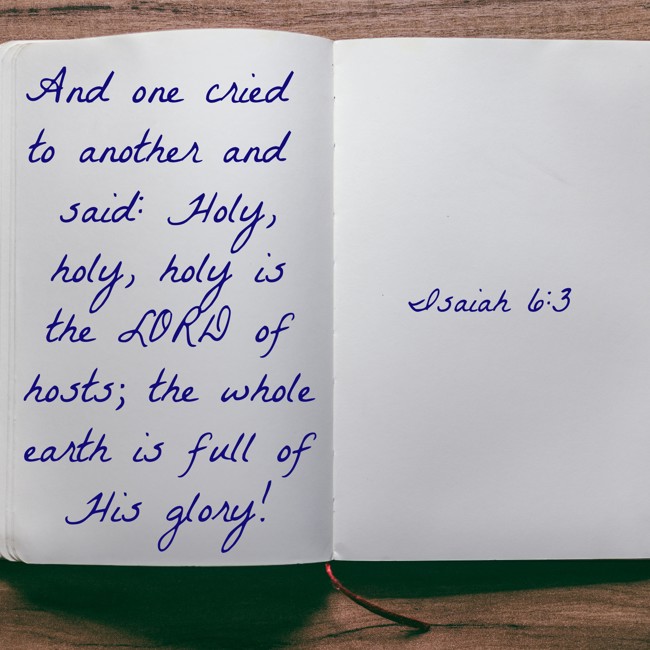 And one cried
to another and
said: Holy,
holy, holy is
the LORD of
hosts; the whole
earth is full of
His glory!
Isaiah 6:3